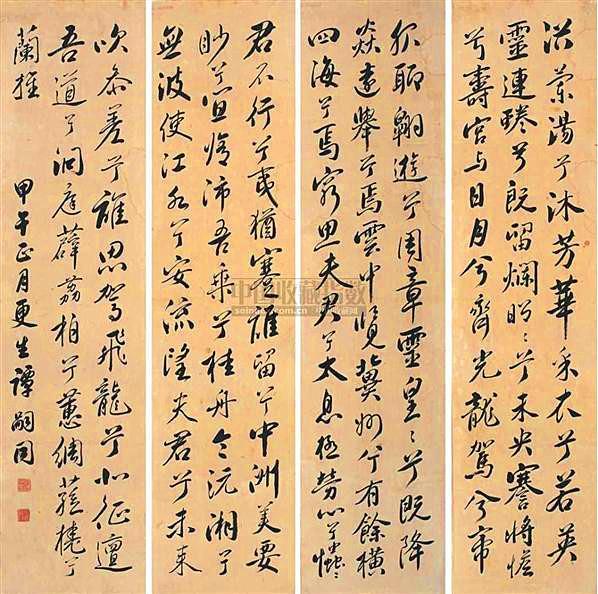 浴蘭湯兮沐芳華采衣兮若英
靈連蜷兮既留爛昭〻兮未央謇將憺
兮壽宮与日月兮齊光龍駕兮帝
服聊翱遊兮周章靈皇〻兮既降
猋遠舉兮焉雲中覽冀州兮有餘橫
四海兮焉窮思夫君兮太息極勞心兮𢥞〻
君不行兮夷猶蹇誰留兮中洲美要
眇兮宜脩沛吾乘兮桂舟令沅湘兮
無波使江水兮安流望夫君兮未來
吹參差兮誰思駕飛龍兮北征邅
吾道兮洞庭薜荔柏兮蕙綢蓀橈兮
蘭旌
甲午正月更生譚嗣同
中国收藏指数